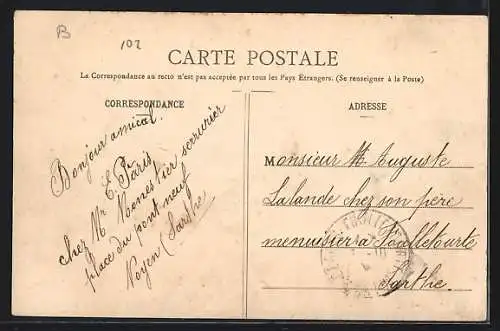 B
102
CARTE POSTALE
La Correspondance au recto n'est pas acceptée par tous les Pays Etrangers. (Se renseigner à la Poste)
CORRESPONDANCE
Bonjour amical.
E. Paris
chez Mr Monestier serrurier
place du pont neuf
Noyen (Sarthe)
ADRESSE
Monsieur M. Auguste
Lalande chez son père
menuisier a
Sarthe.